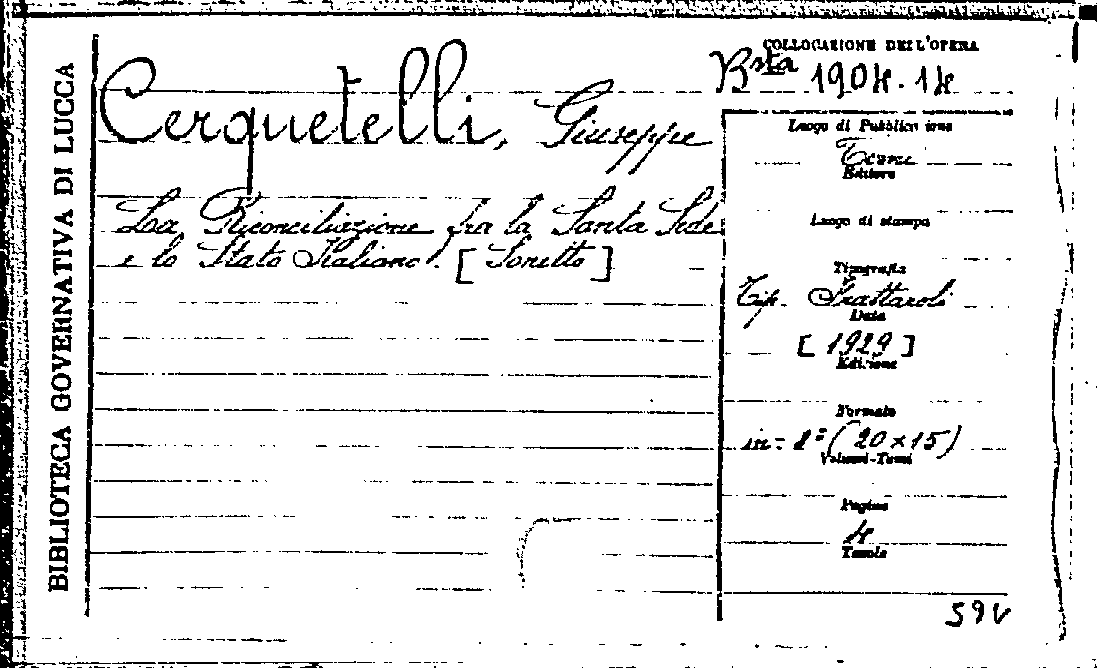 BIBLIOTECA GOVERNATIVA DI LUCCA
COLLOCAZIONE DELL'OPERA
Bsta 1904.14
Cerquetelli, Giuseppe
La Riconciliazione fra la Santa Sede
e lo Stato Italiano. [Sonetto]
Luogo di Pubblicazione
Editore
Luogo di stampa
Tipografia
Tip. Grattaroli
Data
[1929]
Edizione
Formato
in-8º (20x15)
Volumi-Tomi
Pagine
4
Tavole